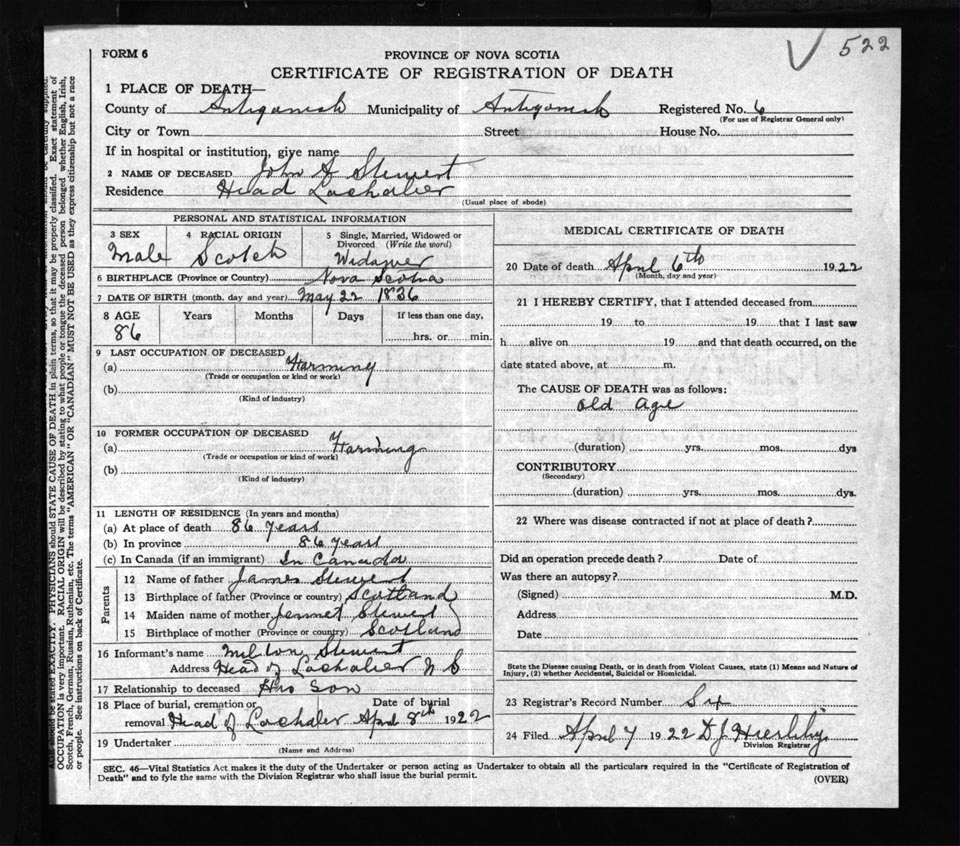 522
FORM 6
PROVINCE OF NOVA SCOTIA
CERTIFICATE OF REGISTRATION OF DEATH
1 PLACE OF DEATH—
County of Antigonish Municipality of Antigonish Registered No. 6
(For use of Registrar General only)
City or Town Street House No.
If in hospital or institution, give name
2 NAME OF DECEASED John A Stewert
Residence Head Lochaber
(Usual place of abode)
PERSONAL AND STATISTICAL INFORMATION
3 SEX 4 RACIAL ORIGIN 5 Single, Married, Widowed or Divorced (Write the word)
Male Scotch Widower
6 BIRTHPLACE (Province or Country) Nova Scotia
7 DATE OF BIRTH (month, day and year) May 22 1836
8 AGE Years Months Days If less than one day,
86 hrs. or min.
9 LAST OCCUPATION OF DECEASED
(a) Farming
(Trade or occupation or kind or work)
(b)
(Kind of industry)
10 FORMER OCCUPATION OF DECEASED
(a) Farming
(Trade or occupation or kind of work)
(b)
(Kind of industry)
11 LENGTH OF RESIDENCE (In years and months)
(a) At place of death 86 years
(b) In province 86 years
(c) In Canada (if an immigrant) In Canada
Parents
12 Name of father James Stewert
13 Birthplace of father (Province or country) Scotland
14 Maiden name of mother Jennet Stewert
15 Birthplace of mother (Province or country) Scotland
16 Informant's name Milton Stewert
Address Head of Lochaber N S
17 Relationship to deceased His Son
18 Place of burial, cremation or Date of burial
removal Head of Lochaber April 8th 1922
19 Undertaker
(Name and Address)
MEDICAL CERTIFICATE OF DEATH
20 Date of death April 6th 1922
(Month, day and year)
21 I HEREBY CERTIFY, that I attended deceased from
19 to 19 that I last saw
h alive on 19 and that death occurred, on the
date stated above, at m.
The CAUSE OF DEATH was as follows:
old age
(duration) yrs. mos. dys
CONTRIBUTORY
(Secondary)
(duration) yrs. mos. dys.
22 Where was disease contracted if not at place of death?
Did an operation precede death? Date of
Was there an autopsy?
(Signed) M.D.
Address
Date
State the Disease causing Death, or in death from Violent Causes, state (1) Means and Nature of
Injury, (2) whether Accidental, Suicidal or Homicidal.
23 Registrar's Record Number Six
24 Filed April 7 1922 D. J.
Division Registrar
SEC. 46—Vital Statistics Act makes it the duty of the Undertaker or person acting as Undertaker to obtain all the particulars required in the "Certificate of Registration of
Death" and to fyle the same with the Division Registrar who shall issue the burial permit.
(OVER)
should be stated EXACTLY. PHYSICIANS should STATE CAUSE OF DEATH in plain terms, so that it may be properly classified. Exact statement of
OCCUPATION is very important. RACIAL ORIGIN will be described by stating to what people or tongue the deceased person belonged whether English, Irish,
Scotch, French, German, Russian, Ruthenian, etc. The terms "AMERICAN" OR "CANADIAN" MUST NOT BE USED as they express citizenship but not a race
or people. See instructions on back of Certificate.